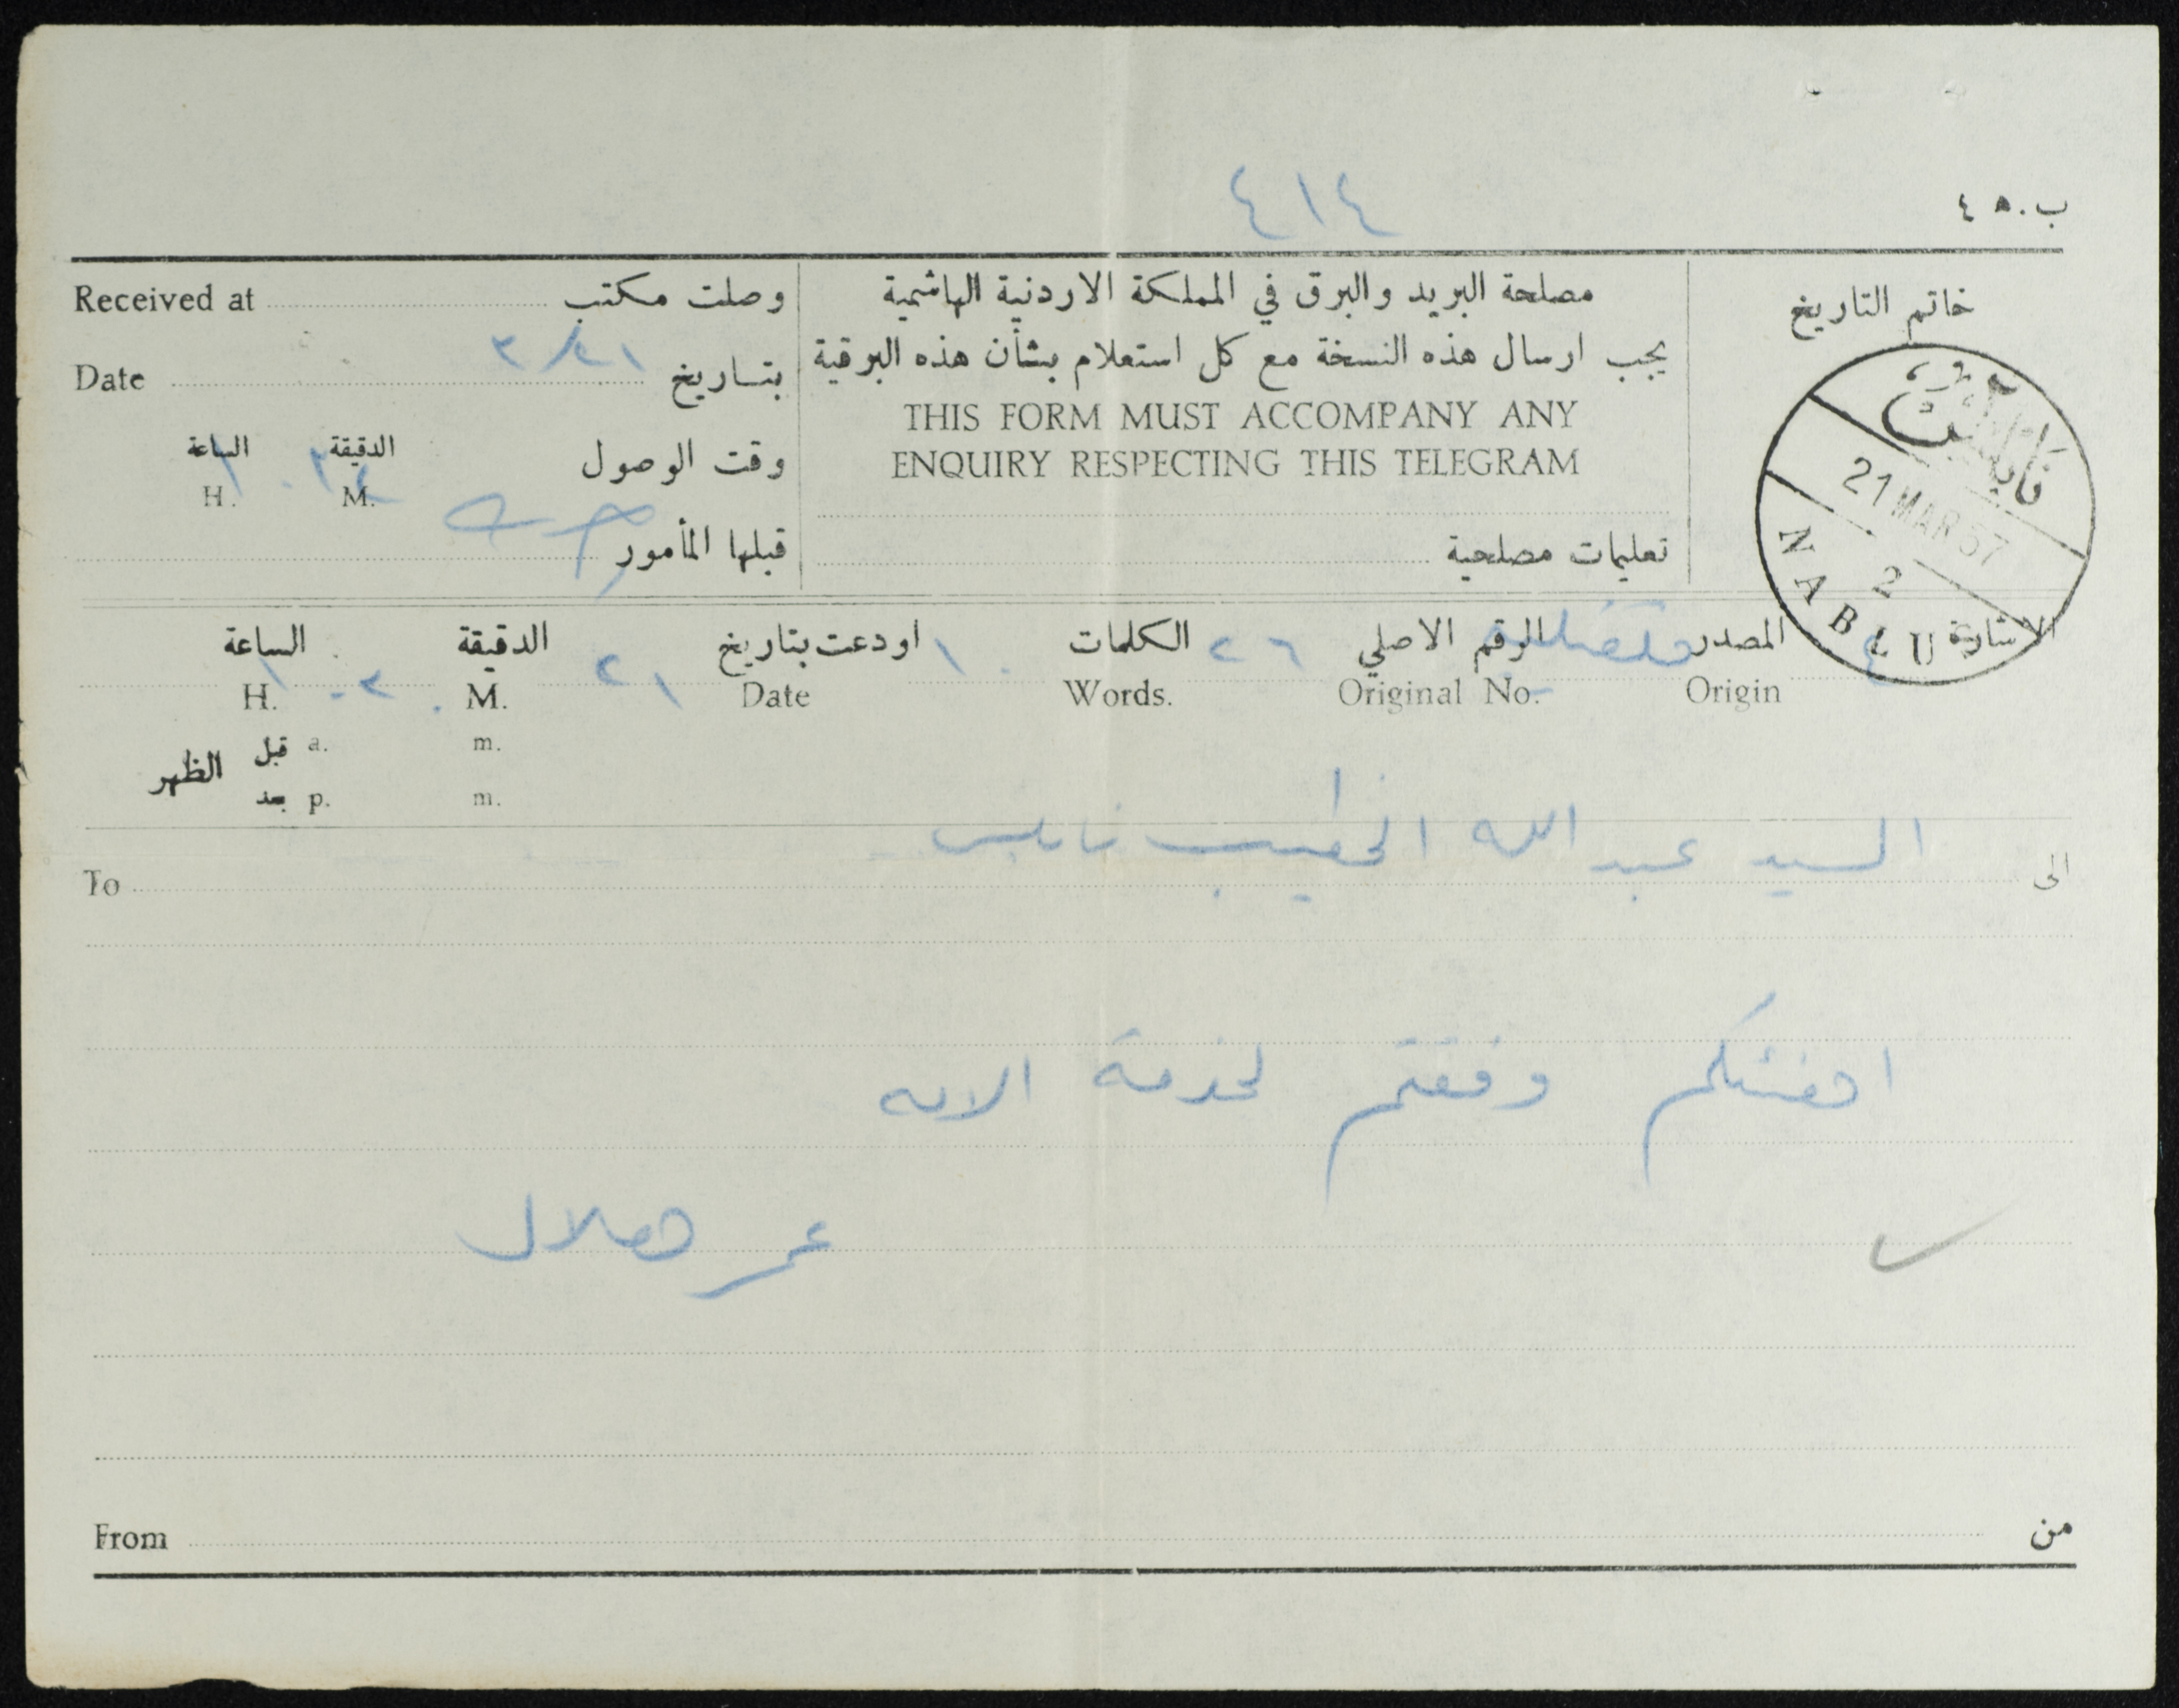 ٤١٤
ب. ٤٥
خاتم التاريخ
مصلحة البريد والبرق في المملكة الاردنية الهاشمية
يجب ارسال هذه النسخة مع كل استعلام بشأن هذه البرقية
THIS FORM MUST ACCOMPANY ANY
ENQUIRY RESPECTING THIS TELEGRAM
تعليمات مصلحية
Received at وصلت مكتب
Date ٢١/٣ بتاريخ
وقت الوصول الدقيقة الساعة
H. M.
قبلها المأمور
نابلس
21 MAR 57
2
NABLUS
الاشارة المصدر الرقم الاصلي ٢٦ الكلمات ١٠ اودعت بتاريخ ٢١ الدقيقة الساعة
Origin Original No. Words. Date M. H.
الظهر قبل a. m.
بعد p. m.
الى السيد عبد الله الخطيب نابلس To
اهنئكم وفقتم لخدمة الامه
عمر هلال
من From